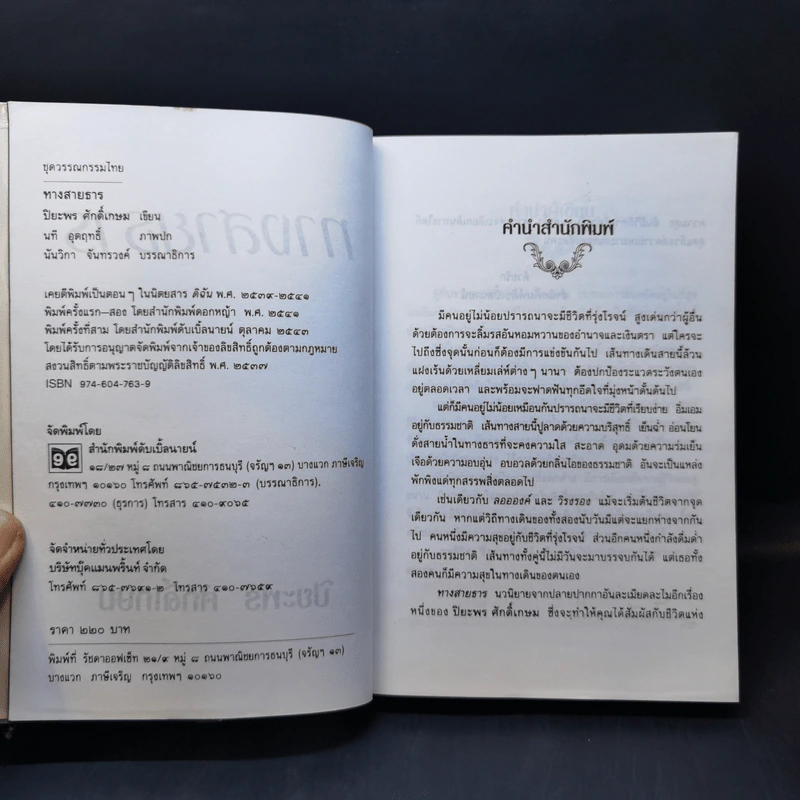 ชุดวรรณกรรมไทย
ทางสายธาร
ปิยะพร ศักดิ์เกษม เขียน
นที อุตฤทธิ์ ภาพปก
นันวิกา จันทรวงค์ บรรณาธิการ
เคยตีพิมพ์เป็นตอนๆ ในนิตยสาร ดิฉัน พ.ศ. ๒๕๓๙-๒๕๔๑
พิมพ์ครั้งแรก-สอง โดยสำนักพิมพ์ดอกหญ้า พ.ศ. ๒๕๔๑
พิมพ์ครั้งที่สาม โดยสำนักพิมพ์ดับเบิ้ลนายน์ ตุลาคม ๒๕๔๓
โดยได้รับการอนุญาตจัดพิมพ์จากเจ้าของลิขสิทธิ์ถูกต้องตามกฎหมาย
สงวนสิทธิ์ตามพระราชบัญญัติลิขสิทธิ์ พ.ศ. ๒๕๓๗
ISBN 974-604-763-9
จัดพิมพ์โดย
สำนักพิมพ์ดับเบิ้ลนายน์
๑๘/๒๗ หมู่ ๘ ถนนพาณิชยการธนบุรี (จรัญฯ ๑๓) บางแวก ภาษีเจริญ
กรุงเทพฯ ๑๐๑๖๐ โทรศัพท์ ๘๖๕-๗๕๓๒-๓ (บรรณาธิการ).
๔๑๐-๗๗๓๐ (ธุรการ) โทรสาร ๔๑๐-๙๐๖๕
จัดจำหน่ายทั่วประเทศโดย
บริษัทบุ๊คแมนพริ้นท์ จำกัด
โทรศัพท์ ๘๖๕-๗๖๙๑-๒ โทรสาร ๔๑๐-๗๖๕๙
ราคา ๒๒๐ บาท
พิมพ์ที่ รัชดาออฟเซ็ท ๒๑/๙ หมู่ ๘ ถนนพาณิชยการธนบุรี (จรัญฯ ๑๓)
บางแวก ภาษีเจริญ กรุงเทพฯ ๑๐๑๖๐
คำนำสำนักพิมพ์
มีคนอยู่ไม่น้อยปรารถนาจะมีชีวิตที่รุ่งโรจน์ สูงเด่นกว่าผู้อื่น
ด้วยต้องการจะลิ้มรสอันหอมหวานของอำนาจและเงินตรา แต่ใครจะ
ไปถึงซึ่งจุดนั้นก่อนก็ต้องมีการแข่งขันกันไป เส้นทางเดินสายนี้ล้วน
แฝงเร้นด้วยเหลี่ยมเล่ห์ต่างๆ นานา ต้องปกป้องระแวดระวังตนเอง
อยู่ตลอดเวลา และพร้อมจะฟาดฟันทุกอีดใจที่มุ่งหน้าดั้นด้นไป
แต่ก็มีคนอยู่ไม่น้อยเหมือนกันปรารถนาจะมีชีวิตที่เรียบง่าย อิ่มเอม
อยู่กับธรรมชาติ เส้นทางสายนี้ปูลาดด้วยความบริสุทธิ์ เย็นฉ่ำ อ่อนโยน
ดั่งสายน้ำในทางธารที่จะคงความใส สะอาด อุดมด้วยความร่มเย็น
เจือด้วยความอบอุ่น อบอวลด้วยกลิ่นไอของธรรมชาติ อันจะเป็นแหล่ง
พักพิงแด่ทุกสรรพสิ่งตลอดไป
เช่นเดียวกับ ลอออรงค์ และ วิรงรอง แม้จะเริ่มต้นชีวิตจากจุด
เดียวกัน หากแต่วิถีทางเดินของทั้งสองนับวันมีแต่จะแยกห่างจากกัน
ไป คนหนึ่งมีความสุขอยู่กับชีวิตที่รุ่งโรจน์ ส่วนอีกคนหนึ่งกำลังดื่มด่ำ
อยู่กับธรรมชาติ เส้นทางทั้งคู่นี้ไม่มีวันจะมาบรรจบกันได้ แต่เธอทั้ง
สองคนก็มีความสุขในทางเดินของตนเอง
ทางสายธาร นวนิยายจากปลายปากกาอันละเมียดละไมอีกเรื่อง
หนึ่งของ ปิยะพร ศักดิ์เกษม ซึ่งจะทำให้คุณได้สัมผัสกับชีวิตแห่ง